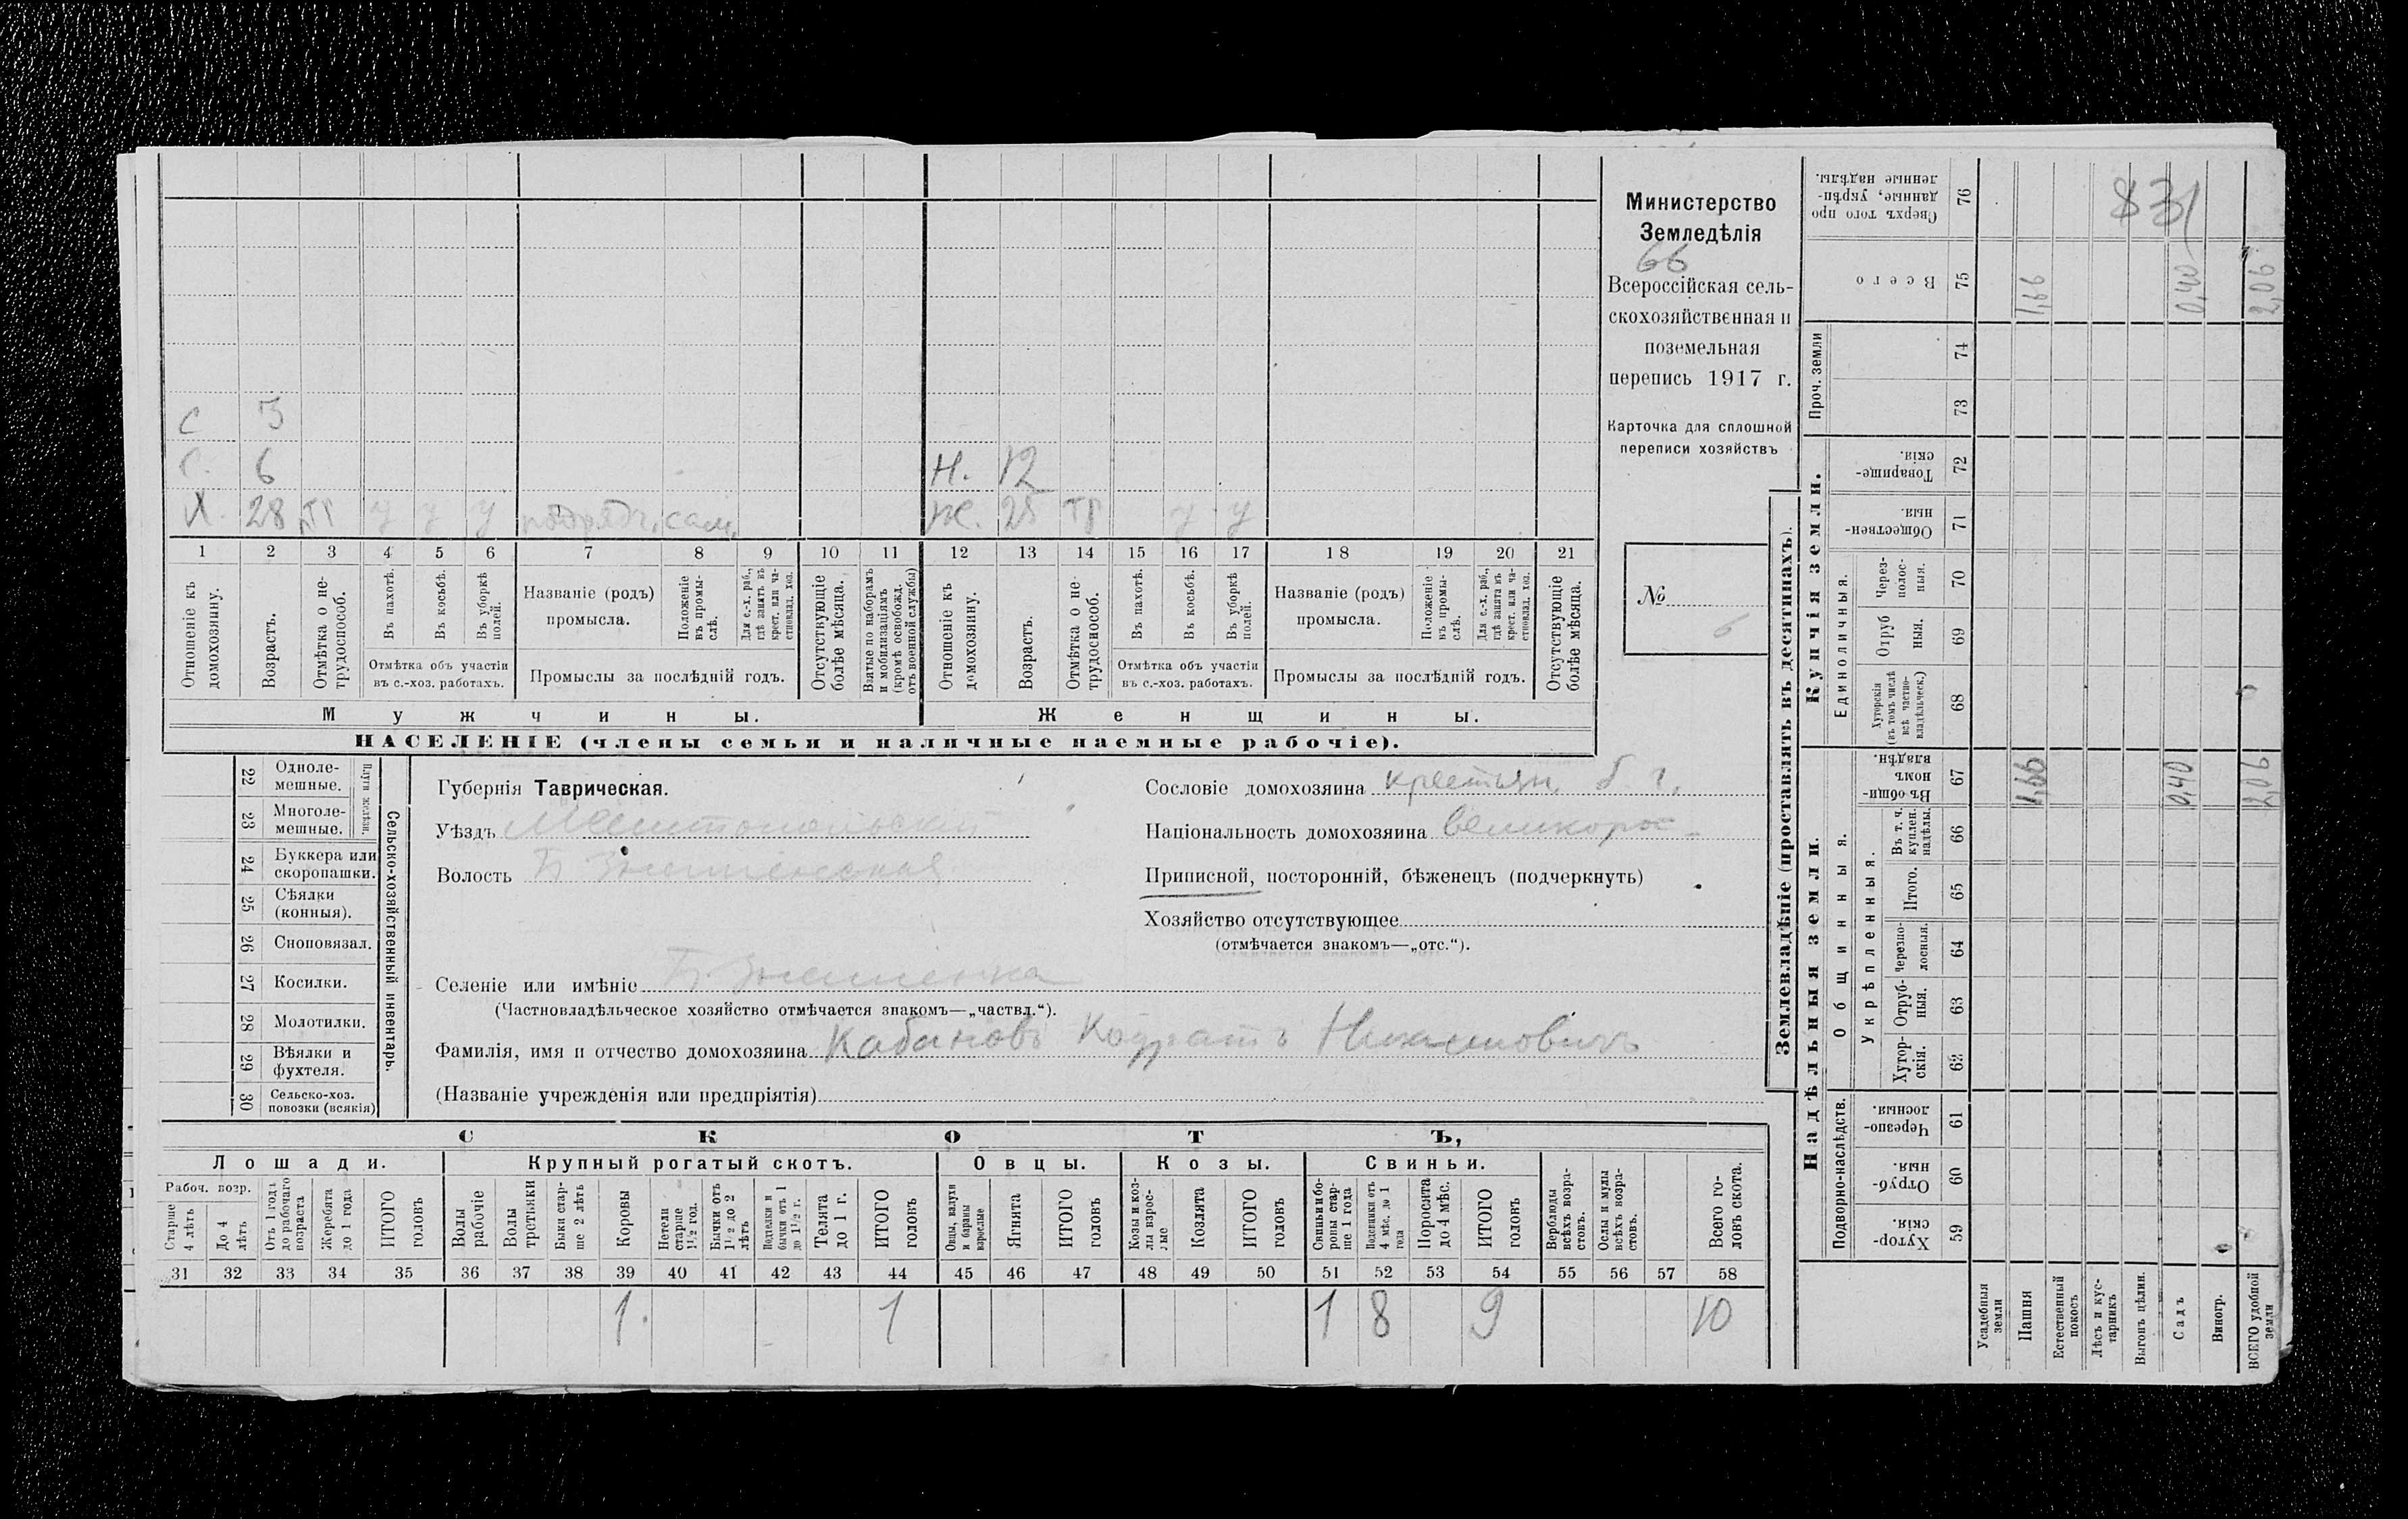 с 5
с. 6
Н. 12
Х. 28 тр у у у подрядч. сам.
ж. 25 тр у у
1 2 3 4 5 6 7 8 9 10 11 12 13 14 15 16 17 18 19 20 21
Отношеніе къ домохозяину.
Возрастъ.
Отмѣтка о нетрудоспособ.
Въ пахотѣ.
Въ косьбѣ.
Въ уборкѣ полей.
Отмѣтка объ участіи
въ с.-хоз. работахъ.
Названіе (родъ)
промысла.
Положеніе въ промыслѣ.
Для с.-х. раб., гдѣ занятъ въ крест. или частновлад. хоз.
Промыслы за послѣдній годъ.
Отсутствующіе болѣе мѣсяца.
Взятые по наборамъ и мобилизаціямъ (кромѣ освобожд. отъ военной службы)
Отношеніе къ домохозяину.
Возрастъ.
Отмѣтка о нетрудоспособ.
Въ пахотѣ.
Въ косьбѣ.
Въ уборкѣ полей.
Отмѣтка объ участіи
въ с.-хоз. работахъ.
Названіе (родъ)
промысла.
Положеніе въ промыслѣ.
Для с.-х. раб., гдѣ занята въ крест. или частновлад. хоз.
Промыслы за послѣдній годъ.
Отсутствующіе болѣе мѣсяца.
Мужчины.
Женщины.
НАСЕЛЕНІЕ (члены семьи и наличные наемные рабочіе).
Министерство
Земледѣлія
66
Всероссійская сель-
скохозяйственная и
поземельная
перепись 1917 г.
Карточка для сплошной
переписи хозяйствъ
№ 6
22 Одноле-
мешные.
23 Многоле-
мешные.
Плуги желѣзн.
24 Буккера или
скоропашки.
25 Сѣялки
(конныя).
26 Сноповязал.
27 Косилки.
28 Молотилки.
29 Вѣялки и
фухтеля.
30 Сельско-хоз.
повозки (всякія)
Сельско-хозяйственный инвентарь.
Губернія Таврическая.
Уѣздъ Мелитопольскій
Волость Б Знаменская
Селеніе или имѣніе Б. Знаменка
(Частновладѣльческое хозяйство отмѣчается знакомъ—„частвл.“).
Фамилія, имя и отчество домохозяина Кабановъ Кодратъ
(Названіе учрежденія или предпріятія)
Сословіе домохозяина крестьян. б. г.
Національность домохозяина великорос
Приписной, посторонній, бѣженецъ (подчеркнуть)
Хозяйство отсутствующее
(отмѣчается знакомъ—„отс.“).
СКОТЪ,
Лошади. Крупный рогатый скотъ. Овцы. Козы. Свиньи.
Рабоч. возр.
Старше 4 лѣтъ
До 4 лѣтъ
Отъ 1 года до рабочаго возраста
Жеребята до 1 года
ИТОГО головъ
Волы рабочіе
Волы третьяки
Быки старше 2 лѣтъ
Коровы
Нетели старше 1½ год.
Бычки отъ 1½ до 2 лѣтъ
Подтелки и бычки отъ 1 до 1½ г.
Телята до 1 г.
ИТОГО головъ
Овцы, валухи и бараны взрослые
Ягнята
ИТОГО головъ
Козы и козлы взрослые
Козлята
ИТОГО головъ
Свиньи и боровы старше 1 года
Подсвинки отъ 4 мѣс. до 1 года
Поросята до 4 мѣс.
ИТОГО головъ
Верблюды всѣхъ возрастовъ.
Ослы и мулы всѣхъ возрастовъ.
Всего головъ скота.
31 32 33 34 35 36 37 38 39 40 41 42 43 44 45 46 47 48 49 50 51 52 53 54 55 56 57 58
1. 1 1 8 9 10
Землевладѣніе (проставлять въ десятинахъ).
Надѣльныя земли.
Купчія земли.
Проч. земли
Подворно-наслѣдств.
Общинныя.
Укрѣпленныя.
Единоличныя.
Сверхъ того проданные, укрѣпленные надѣлы. 76
Всего 75
74
73
Товарищескія. 72
Общественныя. 71
Черезполосныя. 70
Отрубныя. 69
Хуторскія (въ томъ числѣ всѣ частновладѣльческ.) 68
Въ общиномъ владѣн. 67
Въ т. ч. куплен. надѣлы. 66
Итого. 65
Черезполосныя. 64
Отрубныя. 63
Хуторскія. 62
Черезполосныя. 61
Отрубныя. 60
Хуторскія. 59
831
1,66 0,40 2,06
1,66 0,40 2,06
Усадебныя земли
Пашня
Естественный покосъ
Лѣсъ и кустарникъ
Выгонъ цѣлин.
Садъ
Виногр.
ВСЕГО удобной земли